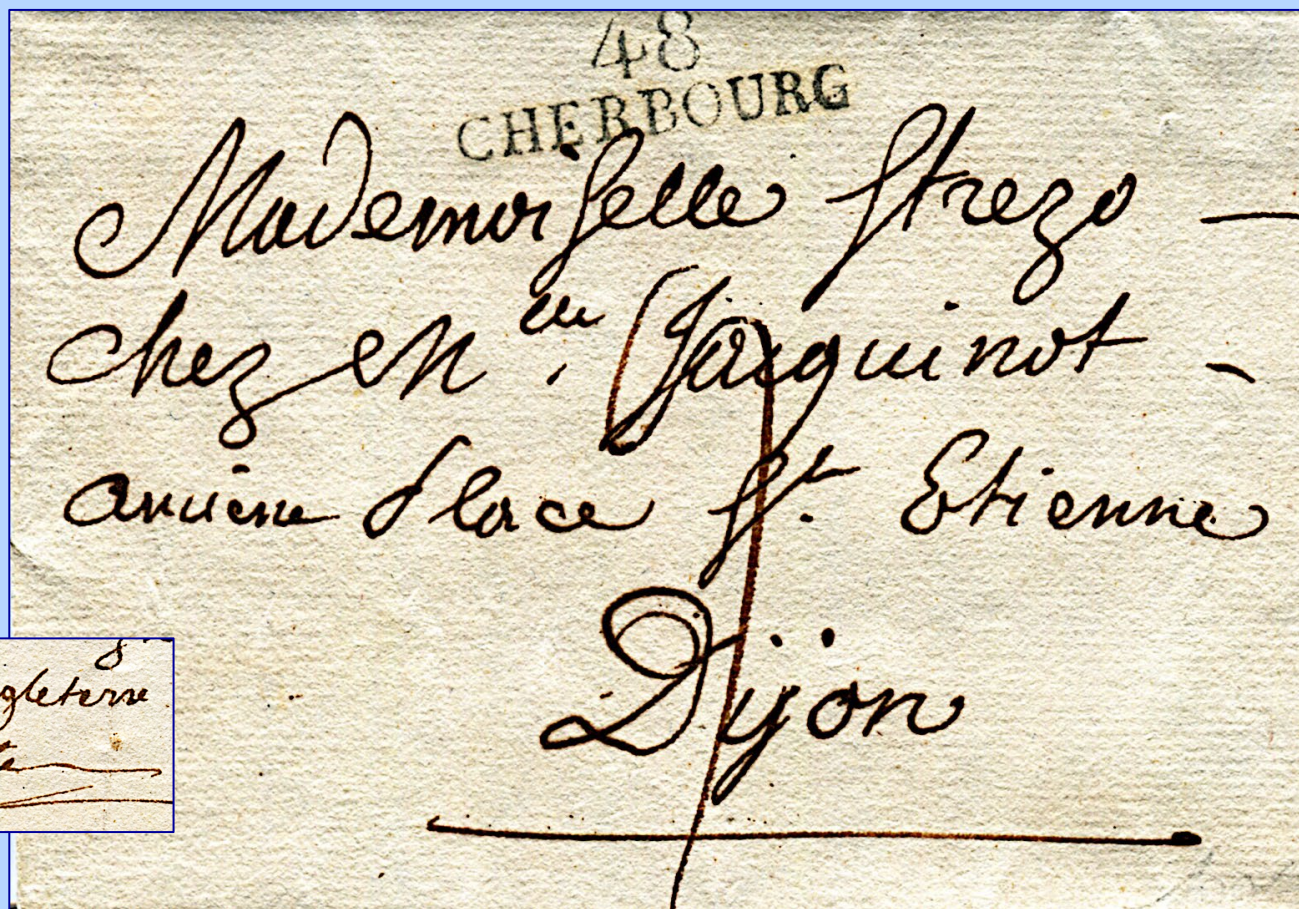 48
CHERBOURG
Mademoiselle Strezo —
chez M.elle Jacquinot -
anciene place St. Etienne
Dijon
gleterre